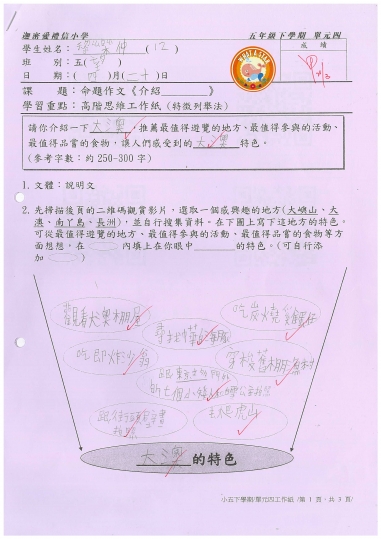 迦密愛禮信小學
五年級下學期 單元四
學生姓名：仲(12)
成績
WHAT A STAR
班 別：五( )
日 期：(四)月(二十)日
課 題：命題作文《介紹________》
學習重點：高階思維工作紙 (特徵列舉法)
請你介紹一下大澳，推薦最值得遊覽的地方、最值得參與的活動、
最值得品嘗的食物，讓人們感受到的大澳特色。
(參考字數：約 250-300 字)
1. 文體：說明文
2. 先掃描後頁的二維碼觀賞影片，選取一個感興趣的地方(大嶼山、大
澳、南丫島、長洲)，並自行搜集資料。在下圖上寫下這地方的特色。
可從最值得遊覽的地方、最值得參與的活動、最值得品嘗的食物等方
面想想，在 內填上在你眼中________的特色。(可自行添
加 )
觀看大澳棚屋
吃炭燒雞蛋仔
尋找
吃即炸
穿梭舊棚
的七個小
拍照
虎山
大澳的特色
小五下學期/單元四工作紙 /第 1 頁，共 3 頁/